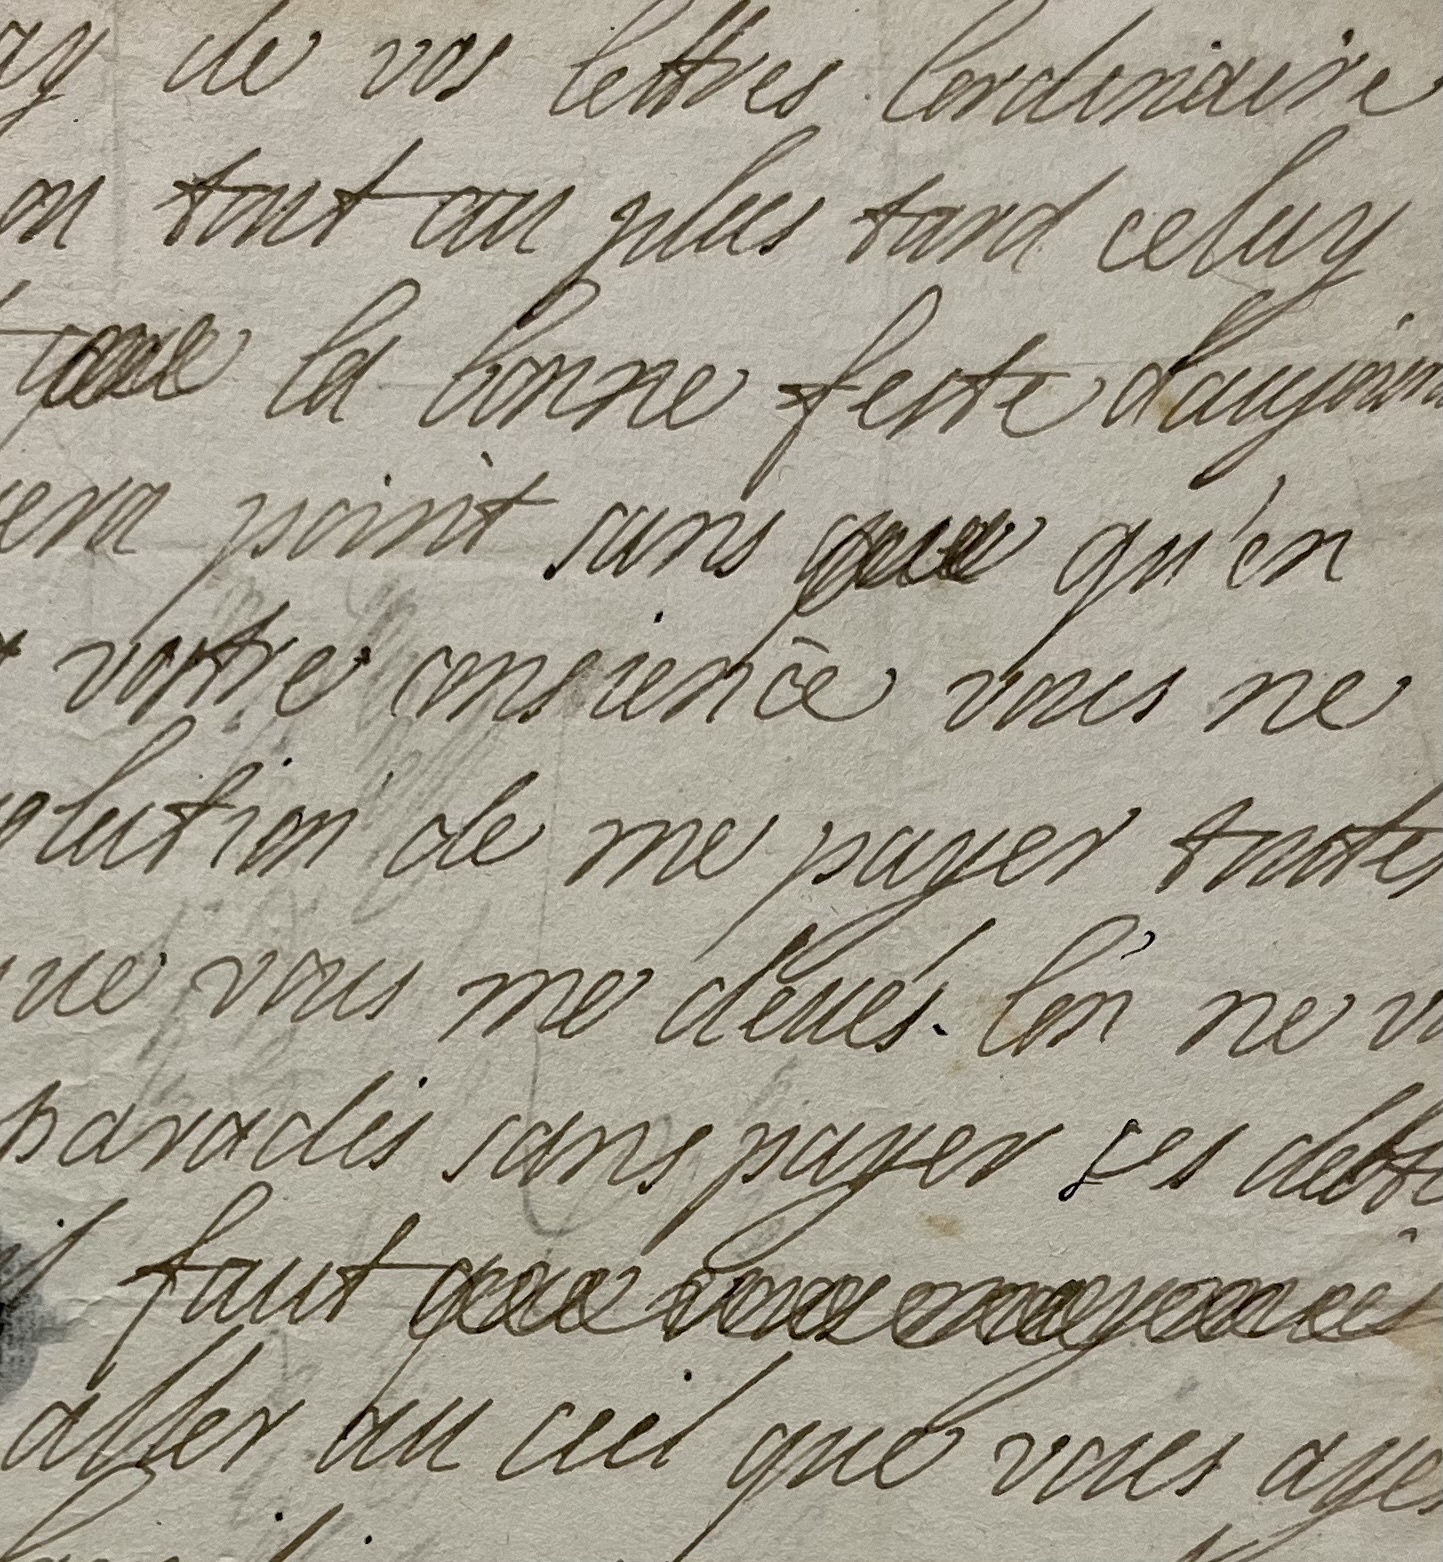 ay de vos lettres lordinaire
on tout au plus tard celuy
la bonne feste daujour
era point sans qu'en
vostre consience vous ne
olution de me payer toutes
ue vous me deués. lon ne v
paradis sans payer ses debte
il faut
aller au ciel que vous ayes